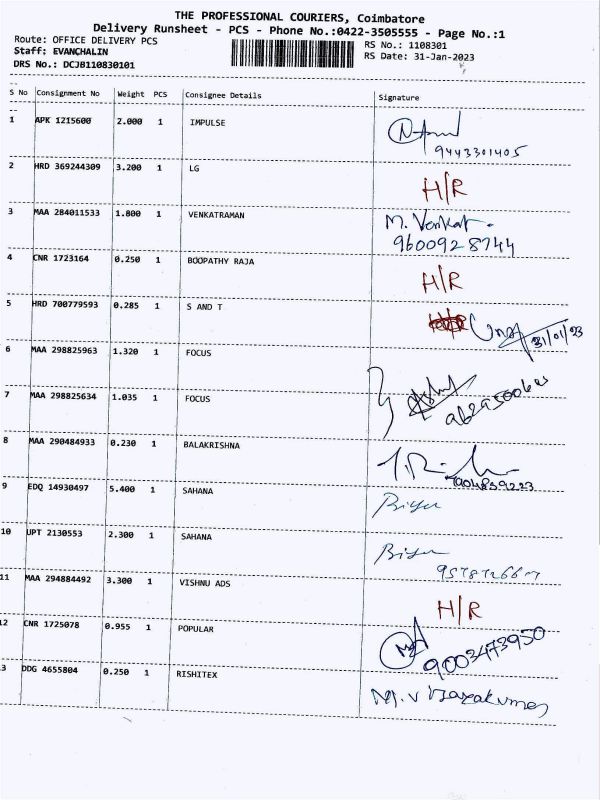 THE PROFESSIONAL COURIERS, Coimbatore
Delivery Runsheet - PCS - Phone No.:0422-3505555 - Page No.:1
Route: OFFICE DELIVERY PCS RS No.: 1108301
Staff: EVANCHALIN RS Date: 31-Jan-2023
DRS No.: DCJB110830101
S No Consignment No Weight PCS Consignee Details Signature
1 APK 1215600 2.000 1 IMPULSE
9443301405
2 HRD 369244309 3.200 1 LG H/R
3 MAA 284011533 1.800 1 VENKATRAMAN M. Venkat.
9600928744
4 CNR 1723164 0.250 1 BOOPATHY RAJA H/R
5 HRD 700779593 0.285 1 S AND T 31/01/23
6 MAA 298825963 1.320 1 FOCUS
7 MAA 298825634 1.035 1 FOCUS
8 MAA 290484933 0.230 1 BALAKRISHNA
9 EDQ 14930497 5.400 1 SAHANA
10 UPT 2130553 2.300 1 SAHANA
11 MAA 294884492 3.300 1 VISHNU ADS H/R
12 CNR 1725078 0.955 1 POPULAR
9003473950
3 DDG 4655804 0.250 1 RISHITEX